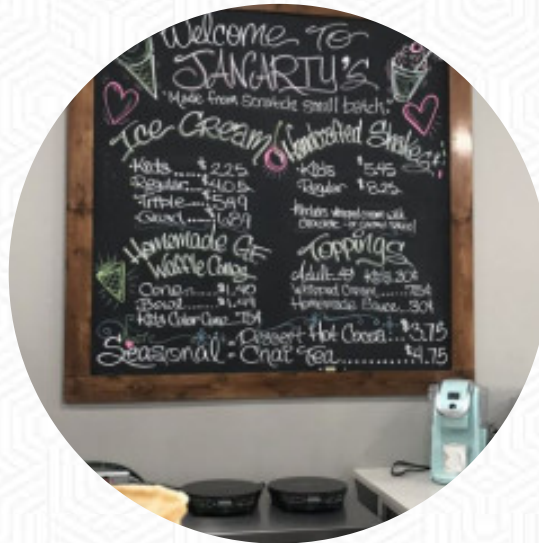 Welcome To
JANGARTY'S
"Made from Scratch small batch."
Ice Cream
Kids..... $2.25
Regular... $4.05
Triple..... $5.49
Quad...... $6.89
Handcrafted Shakes
Kids $5.45
Regular $8.25
Includes whipped cream with
chocolate or caramel sauce!
Homemade GF
Waffle Cones
Cone....... $1.40
Bowl....... $1.49
Kids Color Cone 75¢
Toppings
Adult 49 Kids 30¢
Whipped Cream 75¢
Homemade Sauce 30¢
Seasonal: Dessert Hot Cocoa... $3.75
Chai Tea............ $4.75